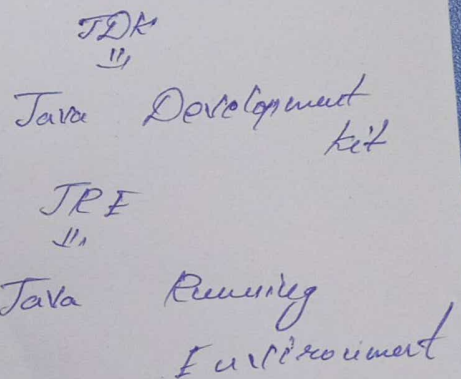 JDK
Java Development
kit
JRE
Java Running
Environment